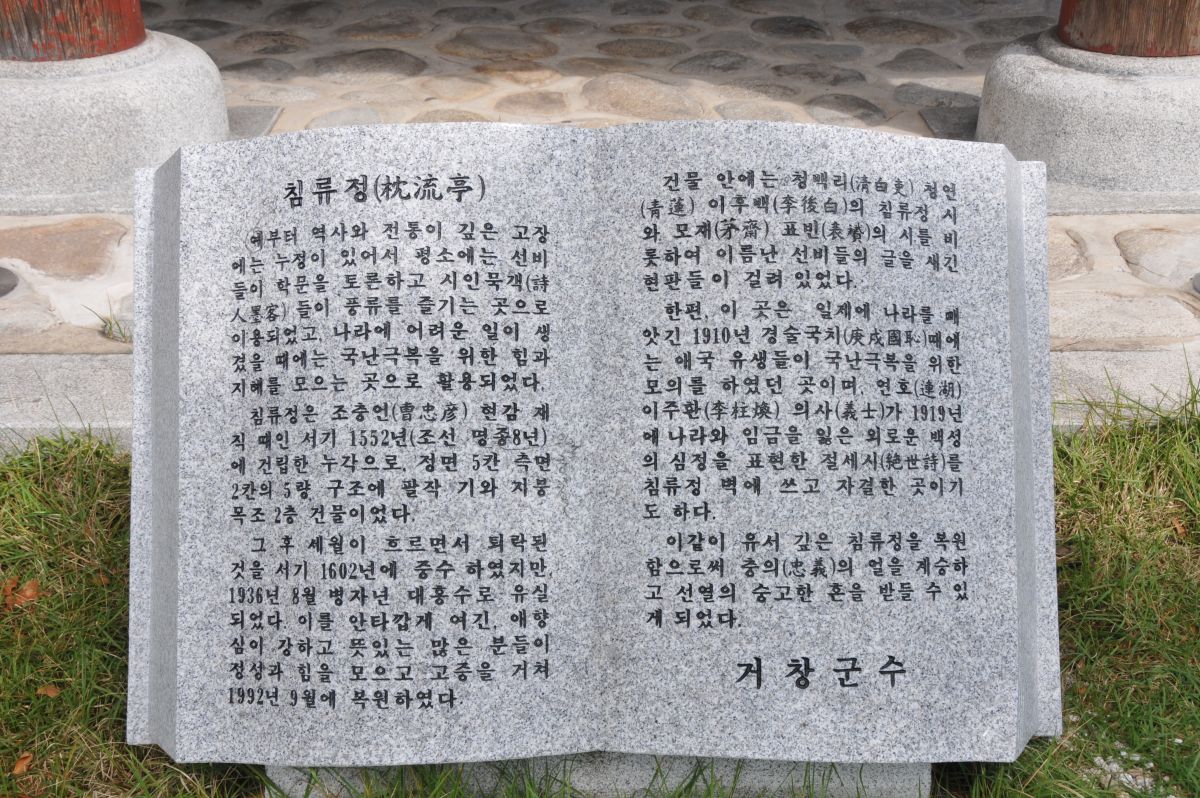 침류정(枕流亭)
예부터 역사와 전통이 깊은 고장
에는 누정이 있어서 평소에는 선비
들이 학문을 토론하고 시인묵객(詩
人墨客)들이 풍류를 즐기는 곳으로
이용되었고, 나라에 어려운 일이 생
겼을 때에는 국난극복을 위한 힘과
지혜를 모으는 곳으로 활용되었다.
침류정은 조충언(曺忠彦) 현감 재
직 때인 서기 1552년(조선 명종8년)
에 건립한 누각으로, 정면 5칸 측면
2칸의 5량 구조에 팔작 기와 지붕
목조 2층 건물이었다.
그 후 세월이 흐르면서 퇴락된
것을 서기 1602년에 중수 하였지만,
1936년 8월 병자년 대홍수로 유실
되었다. 이를 안타깝게 여긴, 애향
심이 강하고 뜻있는 많은 분들이
정성과 힘을 모으고 고증을 거쳐
1992년 9월에 복원하였다.
건물 안에는 청백리(清白吏) 청연
(青蓮) 이후백(李後白)의 침류정 시
와 모재(茅齋) 표빈(表墳)의 시를 비
롯하여 이름난 선비들의 글을 새긴
현판들이 걸려 있었다.
한편, 이 곳은 일제에 나라를 빼
앗긴 1910년 경술국치(庚戌國恥)때에
는 애국 유생들이 국난극복을 위한
모의를 하였던 곳이며, 연호(連湖)
이주환(李柱煥) 의사(義士)가 1919년
에 나라와 임금을 잃은 외로운 백성
의 심정을 표현한 절세시(絶世詩)를
침류정 벽에 쓰고 자결한 곳이기
도 하다.
이같이 유서 깊은 침류정을 복원
함으로써 충의(忠義)의 얼을 계승하
고 선열의 숭고한 혼을 받들 수 있
게 되었다.
거창군수